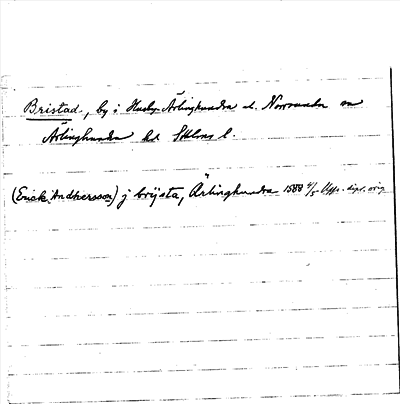 Bristad, by i Husby-Ärlinghundra sn. Norrsunda sn
Ärlinghundra hd Sthlms l.
(Erick Andhersson) j brijsta, Ärlinghundra 1588 2/5 Upps. dipl. orig